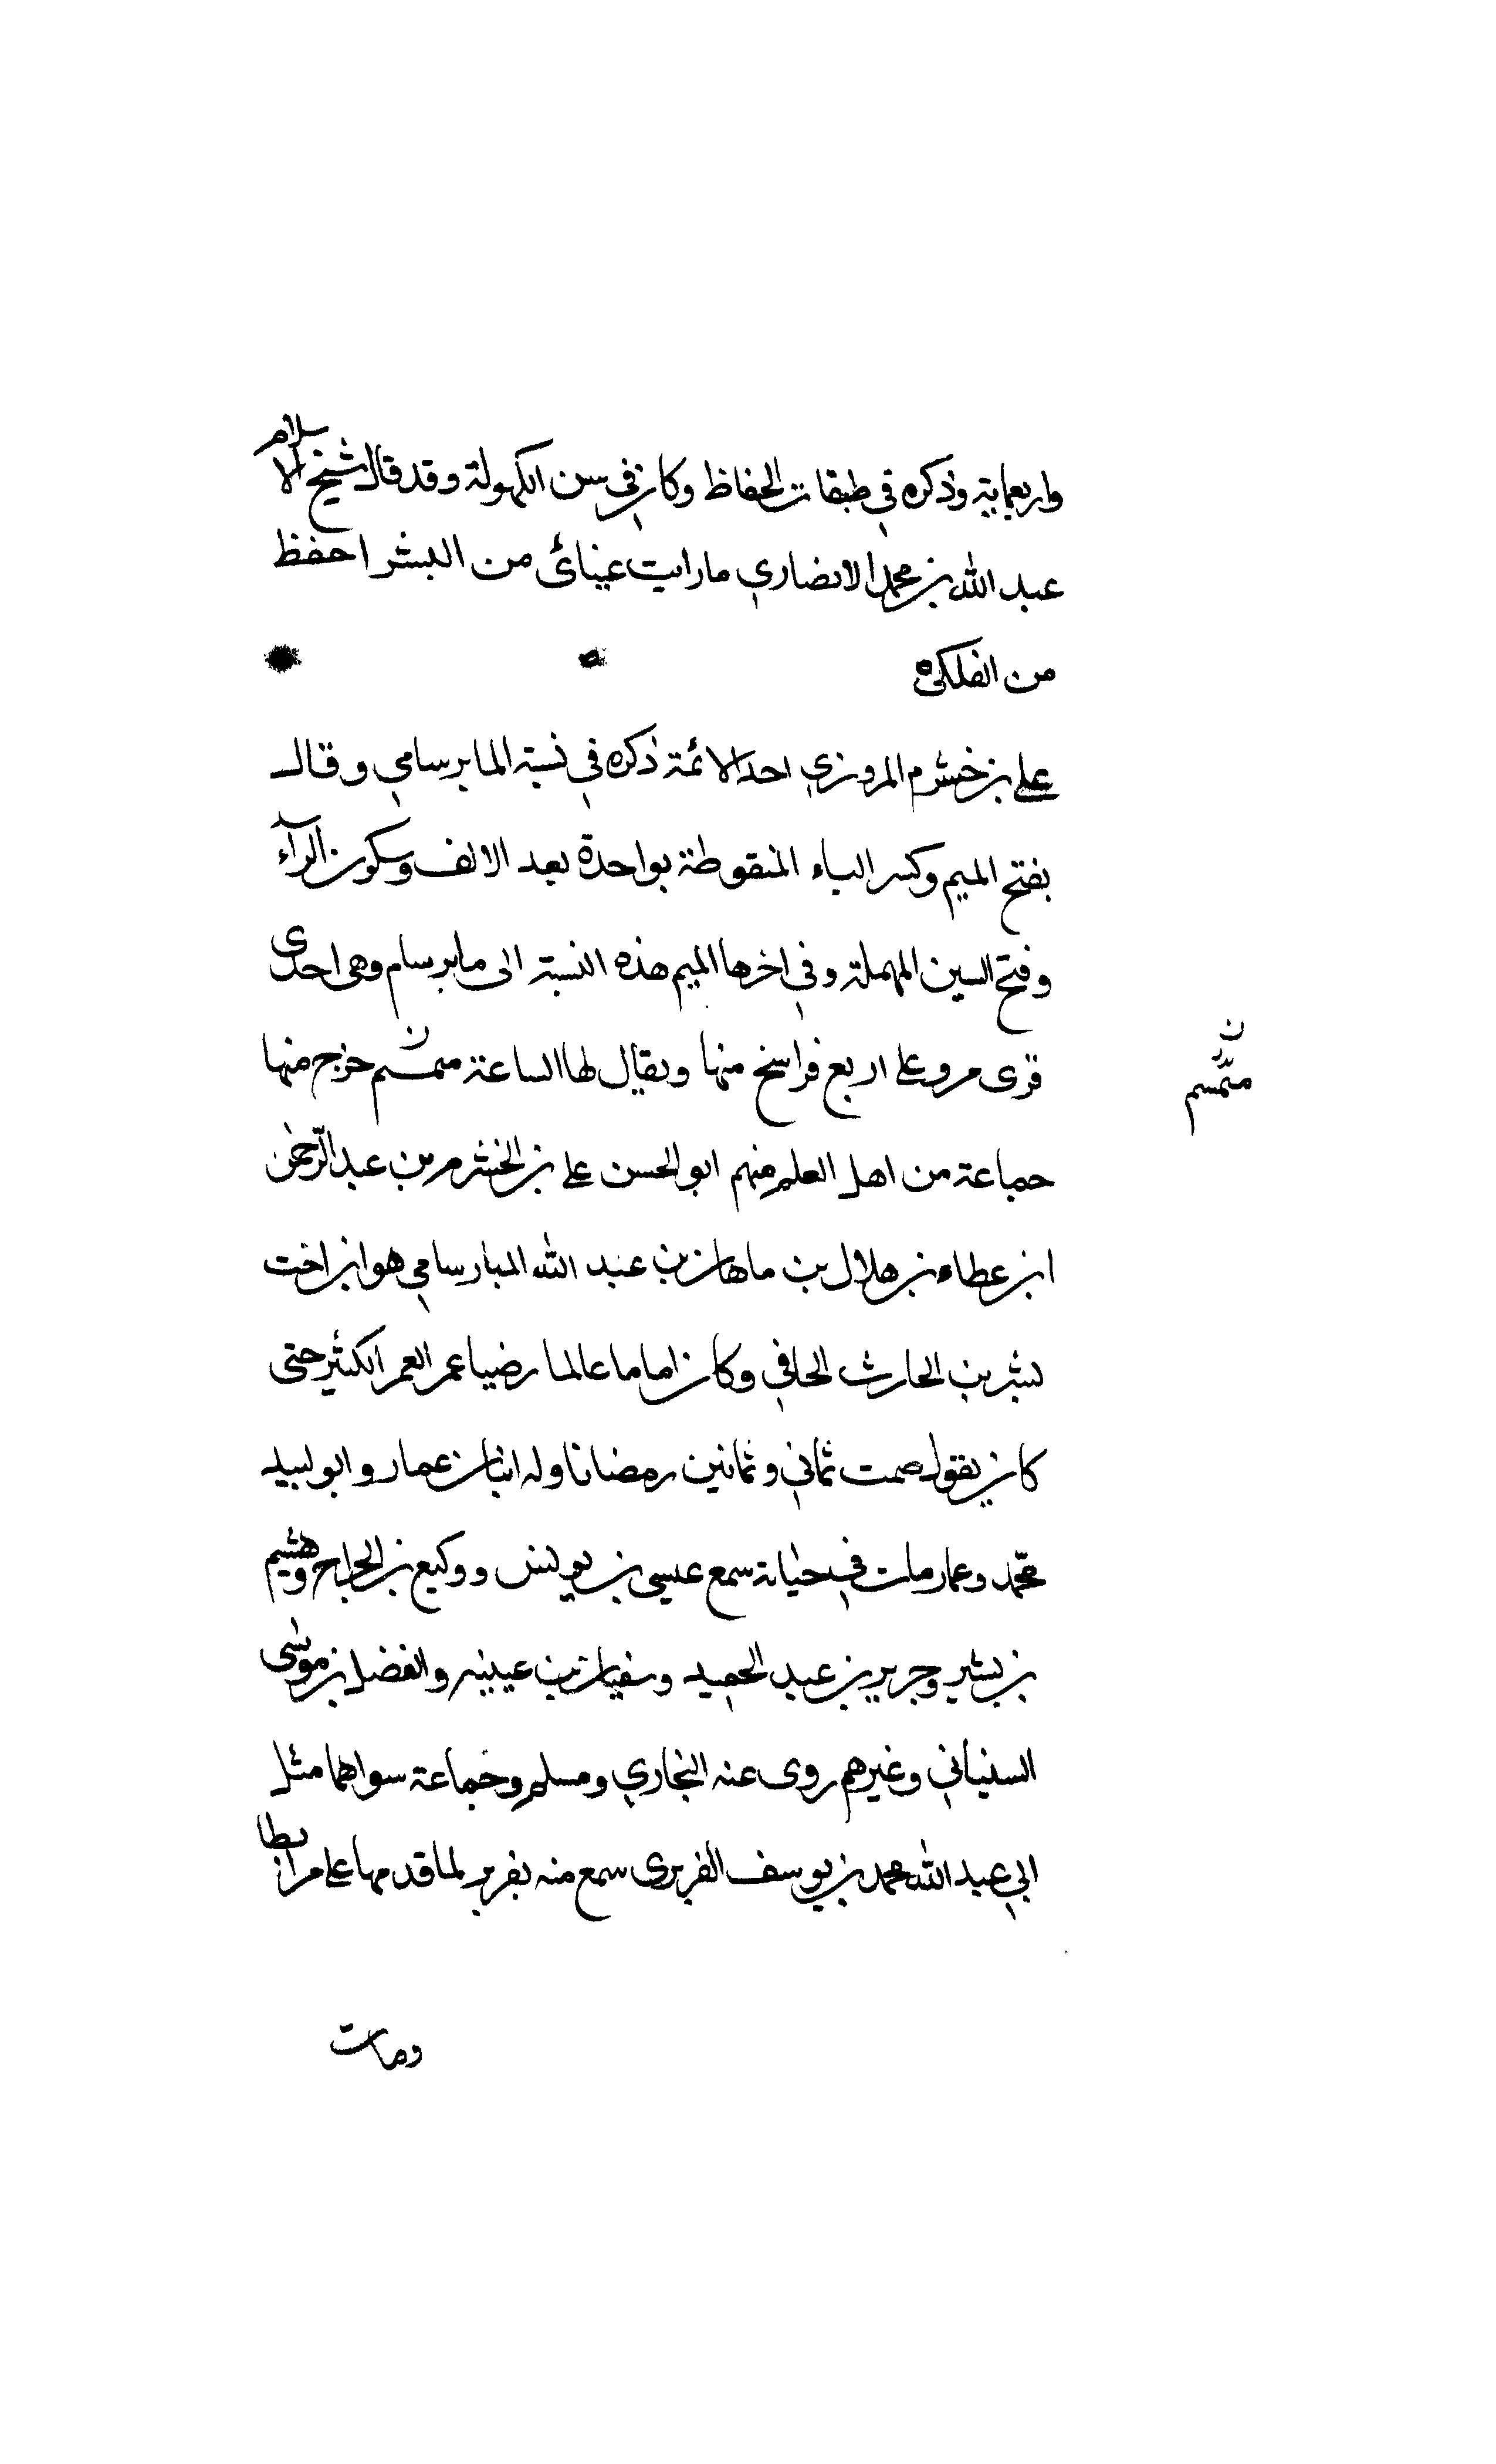 واربعماية وذكره في طبقات الحفاظ وكان في سن الكهولة وقد قال شيخ الاسلام
عبد الله بن محمد الانصاري ما رايت عيناي من البشر احفظ
من الفلكي ه
علي بن خشرم المروزي احد الائمة ذكره في نسبة المابرسامي وقال
بفتح الميم وكسر الباء المنقوطة بواحدة بعد الالف وسكون الرآء
وفتح السين المهملة وفي اخرها الميم هذه النسبة الى مابرسام وهي احدى
قرى مرو على اربع فراسخ منها ويقال لها الساعة خرج منها
جماعة من اهل العلم منهم ابو الحسن علي بن الخشرم بن عبد الرحمن
ابن عطاء بن هلال بن ماهان بن عبد الله المبارسامي هو ابن اخت
بشر بن الحارث الحافي وكان اماما عالما رضيا عمر العمر الكثير حتى
كان يقول صمت ثماني وثمانين رمضانا وله ابنان عمار وابو لبيد
محمد وعمار مات في حياته سمع عيسى بن يونس ووكيع بن الجراح وهشيم
بن بشير وجرير بن عبد الحميد وسفيان بن عيينه والفضل بن موسى
السيناني وغيرهم روى عنه البخاري ومسلم وجماعة سواهما مثل
ابي عبد الله محمد بن يوسف الفربري سمع منه بفربر لما قدمها على مرابطا
ومات